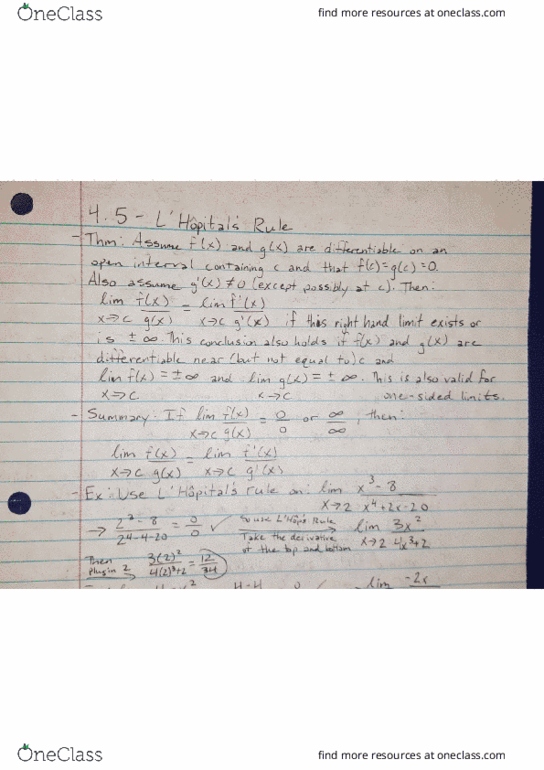 OneClass
find more resources at oneclass.com
4.5 - L'Hôpital's Rule
- Thm: Assume f(x) and g(x) are differentiable on an
open interval containing c and that f(c)=g(c)=0.
Also assume g'(x) ≠ 0 (except possibly at c). Then:
lim f(x) = lim f'(x)
x→c g(x) x→c g'(x) if this right hand limit exists or
is ± ∞. This conclusion also holds if f(x) and g(x) are
differentiable near (but not equal to) c and
lim f(x) = ± ∞ and lim g(x) = ± ∞. This is also valid for
x→c x→c one-sided limits.
- Summary: If lim f(x) = 0 or ∞, then:
x→c g(x) 0 ∞
lim f(x) = lim f'(x)
x→c g(x) x→c g'(x)
- Ex: Use L'Hôpital's rule on: lim x³ - 8
x→2 x⁴+2x-20
→ 2³ - 8 = 0 ✓ So use L'Hôp's Rule lim 3x²
2⁴-4-20 0 Take the derivative of the top and bottom x→2 4x³+2
Then plug in 2 3(2)² = 12
4(2)³+2 34
4-4 0 lim -2x
OneClass
find more resources at oneclass.com